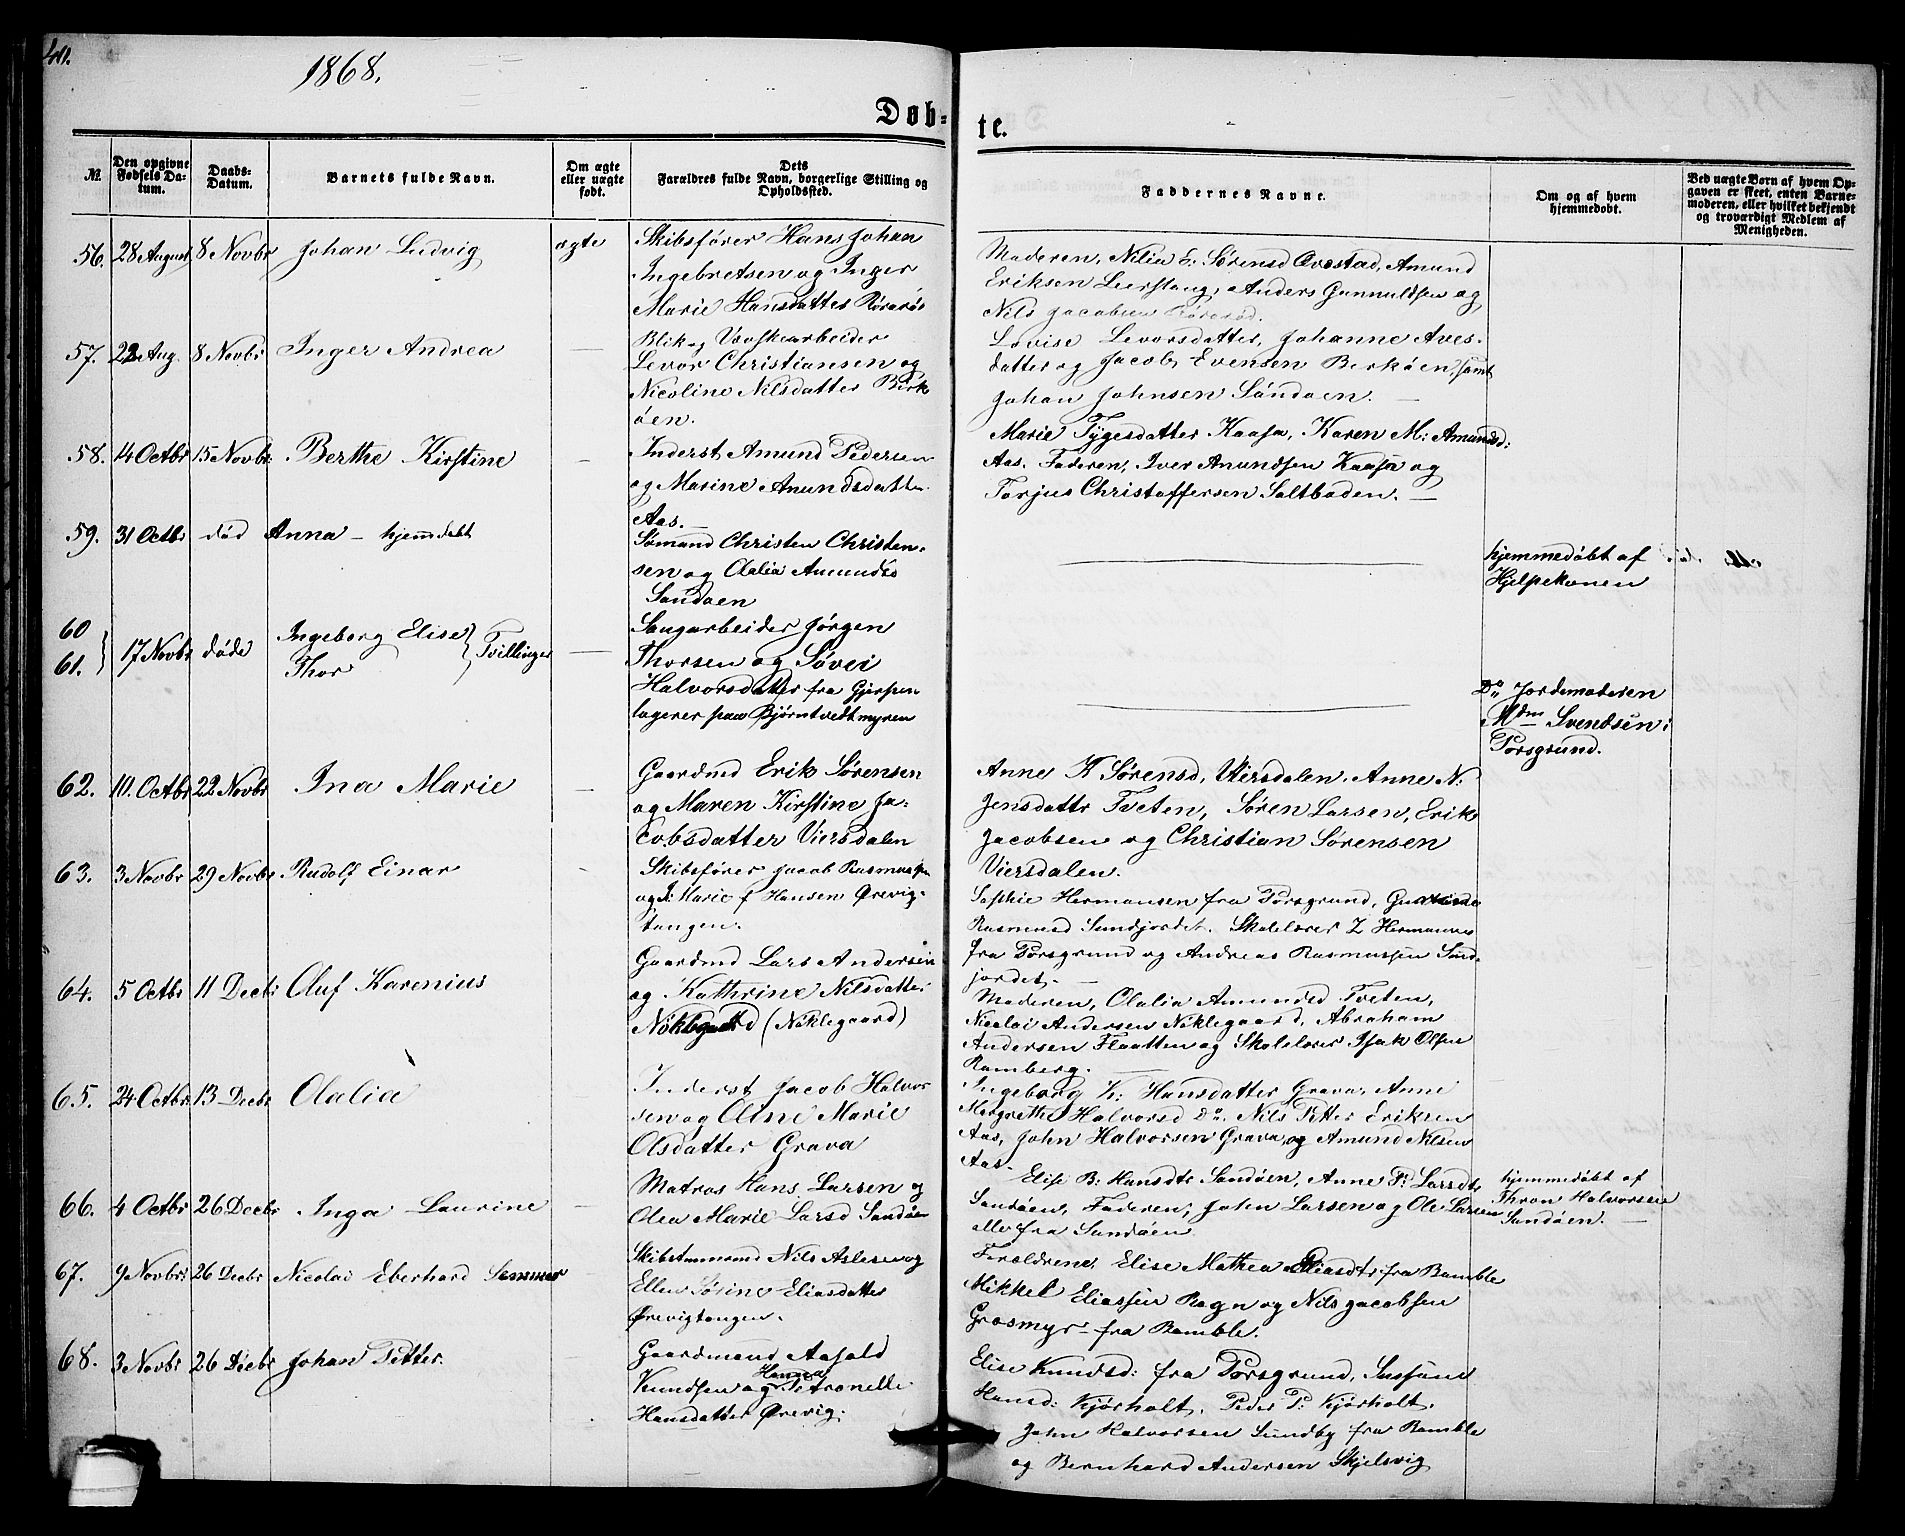 40.
1868.
Døb-
te.
№
Den opgivne
Fødsels Da-
tum.
Daabs-
Datum.
Barnets fulde Navn.
Om ægte
eller uægte
født.
Dets
Forældres fulde Navn, borgerlige Stilling og
Opholdssted.
Faddernes Navne.
Om og af hvem
hjemmedøbt.
Ved uægte Børn af hvem Op-
gaven er skeet, enten Barne-
moderen, eller hvilket bekjendt
og troværdigt Medlem af
Menigheden.
56. 28 August 8 Novbr Johan Ludvig ægte
Skibsfører Hans Johan
Ingebretsen og Inger
Marie Hansdatter Rørerød
Moderen, Nilia S: Sørensd Ovestad, Amund
Eriksen Leerstang, Anders Gunnuldsen og
Nils Jacobsen Rørerød.
57. 22 Aug. 8 Novbr Inger Andrea —
Blik og Værkarbeider
Levor Christiansen og
Nicoline Nilsdatter Birk
øen.
Lovise Levorsdatter, Johanne Aves-
datter og Jacob Evensen Berkøen, samt
Johan Johnsen Sandøen. —
58. 14 Octbr 15 Novbr. Berthe Kirstine —
Inderst Amund Pedersen
og Marine Amundsdatter
Aas. —
Marie Tygesdatter Kaasa, Karen M: Amundsd:
Aas. Faderen, Iver Amundsen Kaasa og
Torjus Christoffersen Saltboden. —
59. 31 Octbr død Anna — hjemdøbt
Sømand Christen Christen-
sen og Olalia Amundss
Sandøen
hjemmedøbt af
Hjelpekonen
60
61. } 17 Novbr døde Ingeborg Elise } Tvillinger —
Thor
Saugarbeider Jørgen
Thorsen og Søvei
Halvorsdatter fra Gjerpen
logerer paa Bjørntvedtmyren
Do Jordemoderen
Mdm Svendsen i
Porsgrund.
62. 10. Octbr 22 Novbr Ina Marie —
Gaardmd Erik Sørensen
og Maren Kirstine Ja-
cobsdatter Viersdalen
Anne K Sørensd, Viersdalen, Anne N.
Jensdattr Tveten, Søren Larsen, Erik
Jacobsen og Christian Sørensen
Viersdalen.
63. 3 Novbr 29 Novbr Rudolf Einar
Skibsfører Jacob Rasmussen
og I: Marie f Hansen Ørevig-
tangen.
Sophie Hermansen fra Porsgrund,
Rasmussd Sundjordet. Skolelærer Z Hermansen
fra Porsgrund og Andreas Rasmussen Sund-
jordet. —
64. 5 Octbr 11 Decbr Oluf Karenius
Gaardmd Lars Andersen
og Kathrine Nilsdatter
Nøklegaard (Nøklegaard)
Moderen, Olalia Amundsd Tveten,
Nicolai Andersen Nøklegaard, Abraham
Andersen Flaatten og Skolelærer Isak Olsen
Ramberg. —
65. 24 Octbr 13 Decbr Olalia
Inderst Jacob Halvor
sen og Anne Marie
Olsdatter Grava
Ingeborg K: Hansdatter Grava, Anne
Margrethe Halvorsd Do, Nils Petter Eriksen
Aas, John Halvorsen Grava, og Amund Nilsen
Aas.
66. 4 Octbr 26 Decbr Inga Laurine —
Matros Hans Larsen og
Olea Marie Larsd Sandøen
Elise B: Hansdtr Sandøen, Anne P: Larsdtr
Sandøen, Faderen, John Larsen og Ole Larsen
alle fra Sandøen
hjemmedøbt af
Thron Halvorsen
Sandøen. —
67. 9 Novbr. 26 Decbr Nicolai Eberhard Sommer
Skibstømmmd Nils Aslesen og
Ellen Sørine Eliasdatter
Ørevigtangen.
Forældrene, Elise Mathea Eliasdtr fra Bamble
Mikkel Eliassen Rogn og Nils Jacobsen
Grosmyr fra Bamble.
68. 3 Novbr 26 Decbr Johan Petter.
Gaardmand Aasold
Knudsen og Hanna Petronelle
Hansdatter Ørevig.
Elise Knudsd: fra Porsgrund, Sussane
Hansd: Kjørholt. Peder P: Kjørholt.
John Halvorsen Sundby fra Bamble
og Bernhard Andersen Skjelsvig